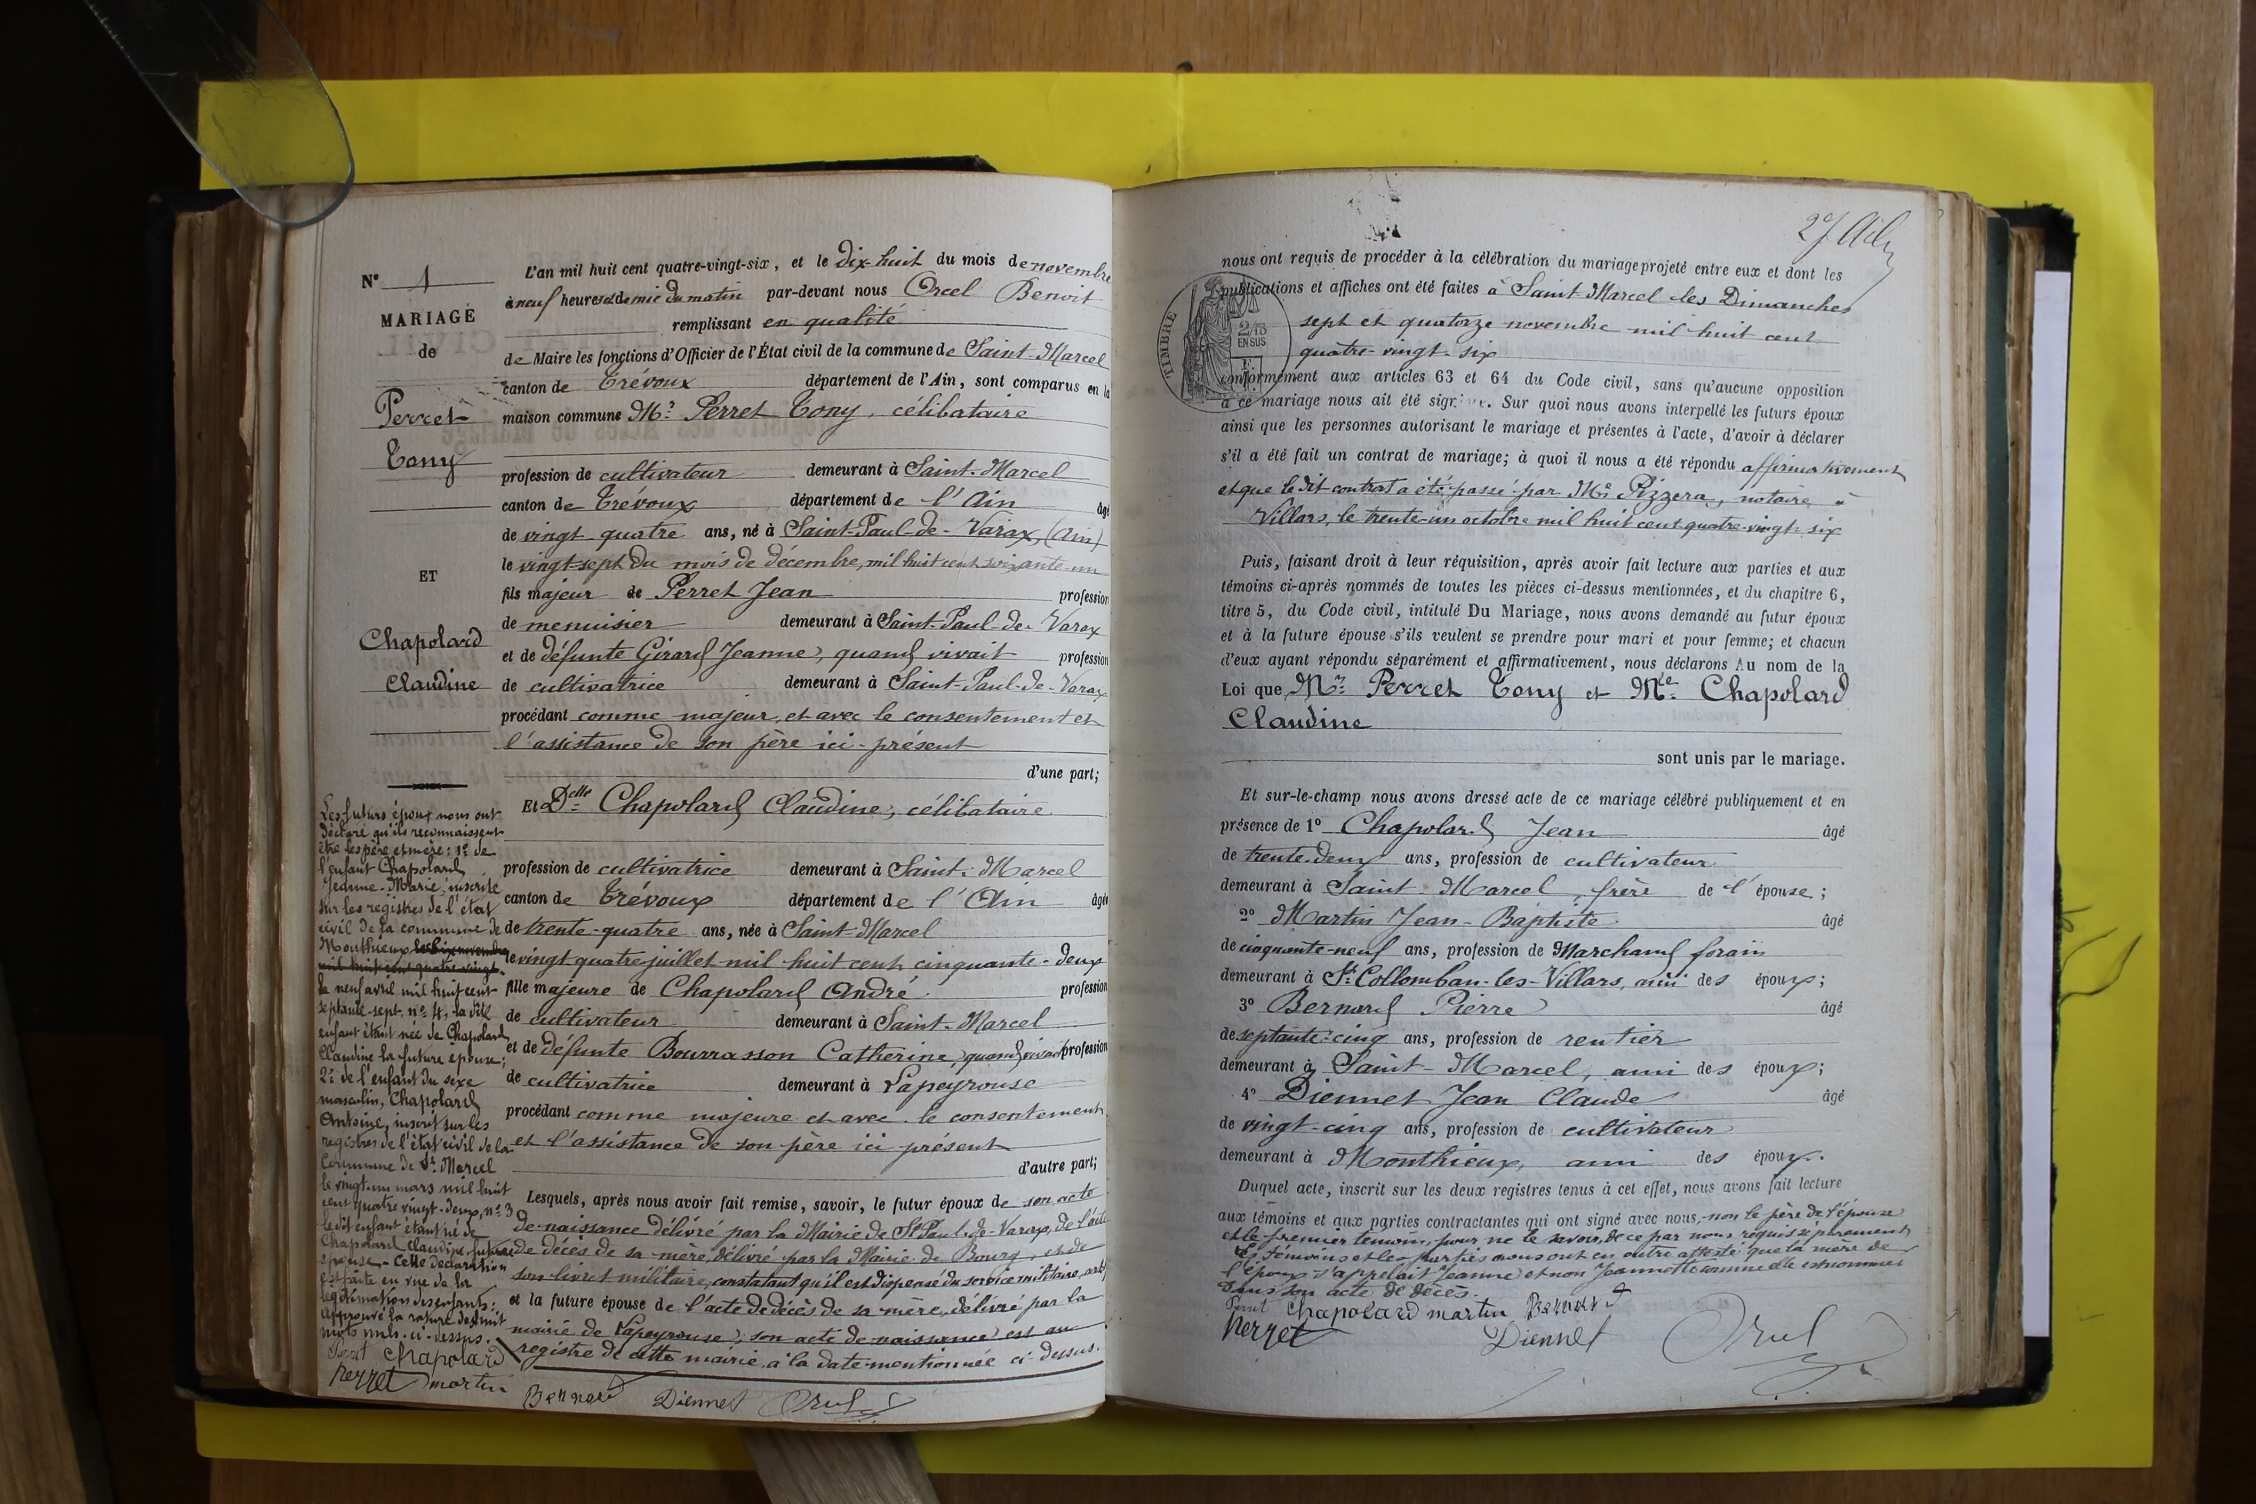 N° 1
MARIAGE
de
Perret
Tony
ET
Chapolard
Claudine
Les futurs époux nous ont
déclaré qu'ils reconnaissent
être les père et mère : 1° de
l'enfant Chapolard
Jeanne-Marie, inscrite
sur les registres de l'état
civil de la commune de
Monthieux le dix novembre
mil huit cent quatre vingt
le neuf avril mil huit cent
septante-sept, n° 4, la dite
enfant étant née de Chapolard
Claudine la future épouse;
2° de l'enfant du sexe
masculin, Chapolard
Antoine, inscrit sur les
registres de l'état civil de la
Commune de St Marcel
le vingt-un mars mil huit
cent quatre vingt-deux, n° 3
le dit enfant étant né de
Chapolard Claudine, future
épouse. - Cette déclaration
est faite en vue de la
légitimation des enfants;
approuvé la rature de huit
mots nuls ci-dessus.
Perret Chapolard
Perret martin Bernard Diennet Orcel
L'an mil huit cent quatre-vingt-six, et le dix-huit du mois de novembre
à neuf heures et demie du matin par-devant nous Orcel Benoit
remplissant en qualité
de Maire les fonctions d'Officier de l'État civil de la commune de Saint-Marcel
canton de Trévoux département de l'Ain, sont comparus en la
maison commune Mr Perret Tony, célibataire
profession de cultivateur demeurant à Saint-Marcel
canton de Trévoux département de l'Ain âgé
de vingt quatre ans, né à Saint-Paul-de-Varax, (Ain)
le vingt-sept du mois de décembre, mil huit cent soixante-un
fils majeur de Perret Jean profession
de menuisier demeurant à Saint-Paul-de-Varax
et de défunte Girard Jeanne, quand vivait profession
de cultivatrice demeurant à Saint-Paul-de-Varax
procédant comme majeur, et avec le consentement et
l'assistance de son père ici-présent
d'une part;
Et Delle Chapolard Claudine, célibataire
profession de cultivatrice demeurant à Saint-Marcel
canton de Trévoux département de l'Ain âgée
de trente-quatre ans, née à Saint-Marcel
le vingt quatre juillet mil huit cent cinquante-deux
fille majeure de Chapolard André profession
de cultivateur demeurant à Saint-Marcel
et de défunte Bourrasson Catherine, quand vivait profession
de cultivatrice demeurant à Lapeyrouse
procédant comme majeure et avec le consentement
et l'assistance de son père ici présent
d'autre part;
Lesquels, après nous avoir fait remise, savoir, le futur époux de son acte
de naissance délivré par la Mairie de St Paul-de-Varax, de l'acte
de décès de sa mère, délivré par la Mairie de Bourg, et de
son livret militaire, constatant qu'il est dispensé du service militaire,
et la future épouse de l'acte de décès de sa mère, délivré par la
mairie de Lapeyrouse; son acte de naissance est au
registre de cette mairie, à la date mentionnée ci-dessus.
nous ont requis de procéder à la célébration du mariage projeté entre eux et dont les
publications et affiches ont été faites à Saint Marcel les Dimanches
sept et quatorze novembre mil huit cent
quatre-vingt-six
TIMBRE
2/10
EN SUS
conformément aux articles 63 et 64 du Code civil, sans qu'aucune opposition
à ce mariage nous ait été signifiée. Sur quoi nous avons interpellé les futurs époux
ainsi que les personnes autorisant le mariage et présentes à l'acte, d'avoir à déclarer
s'il a été fait un contrat de mariage; à quoi il nous a été répondu affirmativement
et que le dit contrat a été passé par Me Pizzera, notaire à
Villars, le trente-un octobre mil huit cent quatre-vingt-six
Puis, faisant droit à leur réquisition, après avoir fait lecture aux parties et aux
témoins ci-après nommés de toutes les pièces ci-dessus mentionnées, et du chapitre 6,
titre 5, du Code civil, intitulé Du Mariage, nous avons demandé au futur époux
et à la future épouse s'ils veulent se prendre pour mari et pour femme; et chacun
d'eux ayant répondu séparément et affirmativement, nous déclarons Au nom de la
Loi que Mr Perret Tony et Mle Chapolard
Claudine
sont unis par le mariage.
Et sur-le-champ nous avons dressé acte de ce mariage célébré publiquement et en
présence de 1° Chapolard Jean âgé
de trente-deux ans, profession de cultivateur
demeurant à Saint-Marcel, frère de l'épouse;
2° Martin Jean-Baptiste âgé
de cinquante-neuf ans, profession de Marchand forain
demeurant à St Collomban-les-Villars, ami des époux;
3° Bernard Pierre âgé
de septante-cinq ans, profession de rentier
demeurant à Saint-Marcel, ami des époux;
4° Diennet Jean Claude âgé
de vingt-cinq ans, profession de cultivateur
demeurant à Monthieux, ami des époux.
Duquel acte, inscrit sur les deux registres tenus à cet effet, nous avons fait lecture
aux témoins et aux parties contractantes qui ont signé avec nous, non le père de l'épouse
et le premier témoin, pour ne le savoir, de ce par nous requis séparément
Les témoins et les parties nous ont en outre attesté que la mère de
l'époux s'appelait Jeanne et non Jeannette comme elle est nommée
dans son acte de décès.
Perret Chapolard martin Bernard
Perret Diennet Orcel